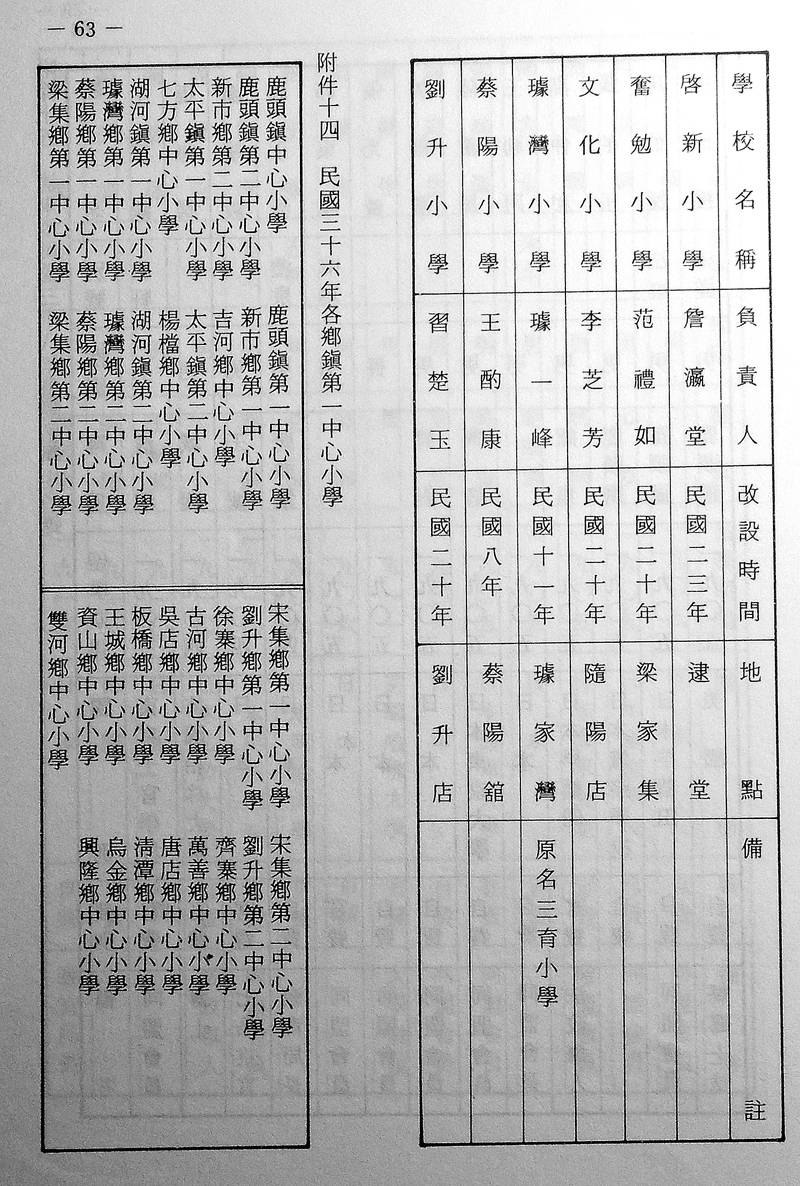 — 63 —
學校名稱 負責人 改設時間 地點 備註
啓新小學 詹瀛堂 民國二三年 逮堂
奮勉小學 范禮如 民國二十年 梁家集
文化小學 李芝芳 民國二十年 隨陽店
璩灣小學 璩一峰 民國十一年 璩家灣 原名三育小學
蔡陽小學 王酌康 民國八年 蔡陽舘
劉升小學 習楚玉 民國二十年 劉升店
附件十四 民國三十六年各鄉鎮第一中心小學
鹿頭鎮中心小學 鹿頭鎮第一中心小學
鹿頭鎮第二中心小學 新市鄉第一中心小學
新市鄉第二中心小學 吉河鄉中心小學
太平鎮第一中心小學 太平鎮第二中心小學
七方鄉中心小學 楊檔鄉中心小學
湖河鎮第一中心小學 湖河鎮第二中心小學
璩灣鄉第一中心小學 璩灣鄉第二中心小學
蔡陽鄉第一中心小學 蔡陽鄉第二中心小學
梁集鄉第一中心小學 梁集鄉第二中心小學
宋集鄉第一中心小學 宋集鄉第二中心小學
劉升鄉第一中心小學 劉升鄉第二中心小學
徐寨鄉中心小學 齊寨鄉中心小學
古河鄉中心小學 萬善鄉中心小學
吳店鄉中心小學 唐店鄉中心小學
板橋鄉中心小學 清潭鄉中心小學
王城鄉中心小學 烏金鄉中心小學
資山鄉中心小學 興隆鄉中心小學
雙河鄉中心小學